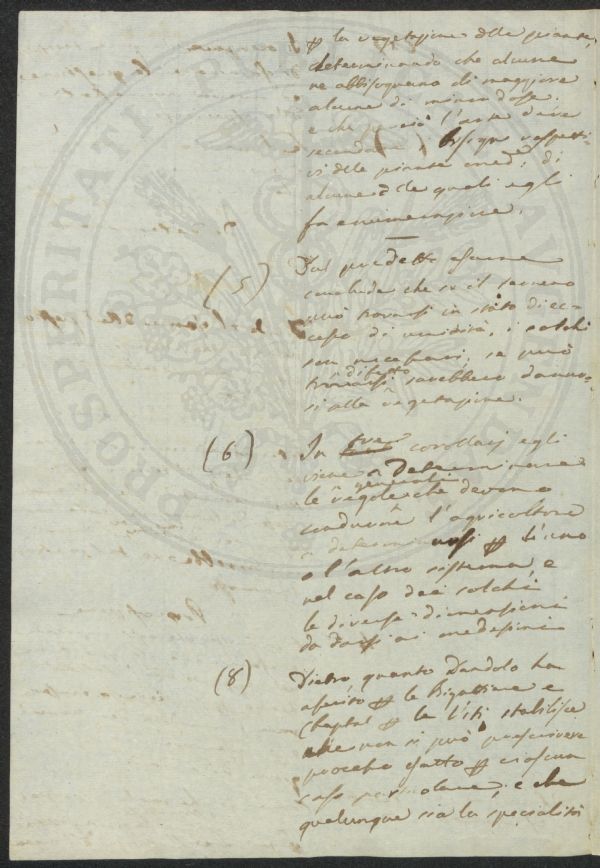 la vegetazione delle piante,
determinando che alcune
ne abbisognano di maggiore
alcune di minor dose
e che ciò l'arte deve
secondare i bisogni rispetti-
vi delle piante med.e di
alcune delle quali egli
fa enumerazione.
(5) Dal predetto esame
conclude che se il terreno
può trovarsi in stato di ec-
cesso di umidità, i solchi
son necessari, se può
trovarsi in difetto sarebbero danno-
si alla vegetazione.
(6) In tre corollarj egli
viene a determinare
le regole generali che devono
condurre l'agricoltore
a determinarsi l'uno
o l'altro sistema, e
nel caso dei solchi
le diverse dimensioni
da darsi ai medesimi
(8) Dietro quanto Dandolo ha
asserito le Bigattiere e
Chaptal le Viti stabilisce
che non si può prescrivere
precetto esatto ciascun
caso particolare, e che
qualunque sia la specialità
PROSPERITATI